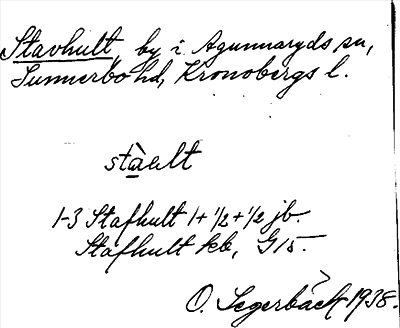 Stavhult, by i Agunnaryds sn,
Sunnerbo hd, Kronobergs l.
stàult
1-3 Stafhult 1+1/2+1/2 jb.
Stafhult kb, G 15.
O. Segerbäck 1938.